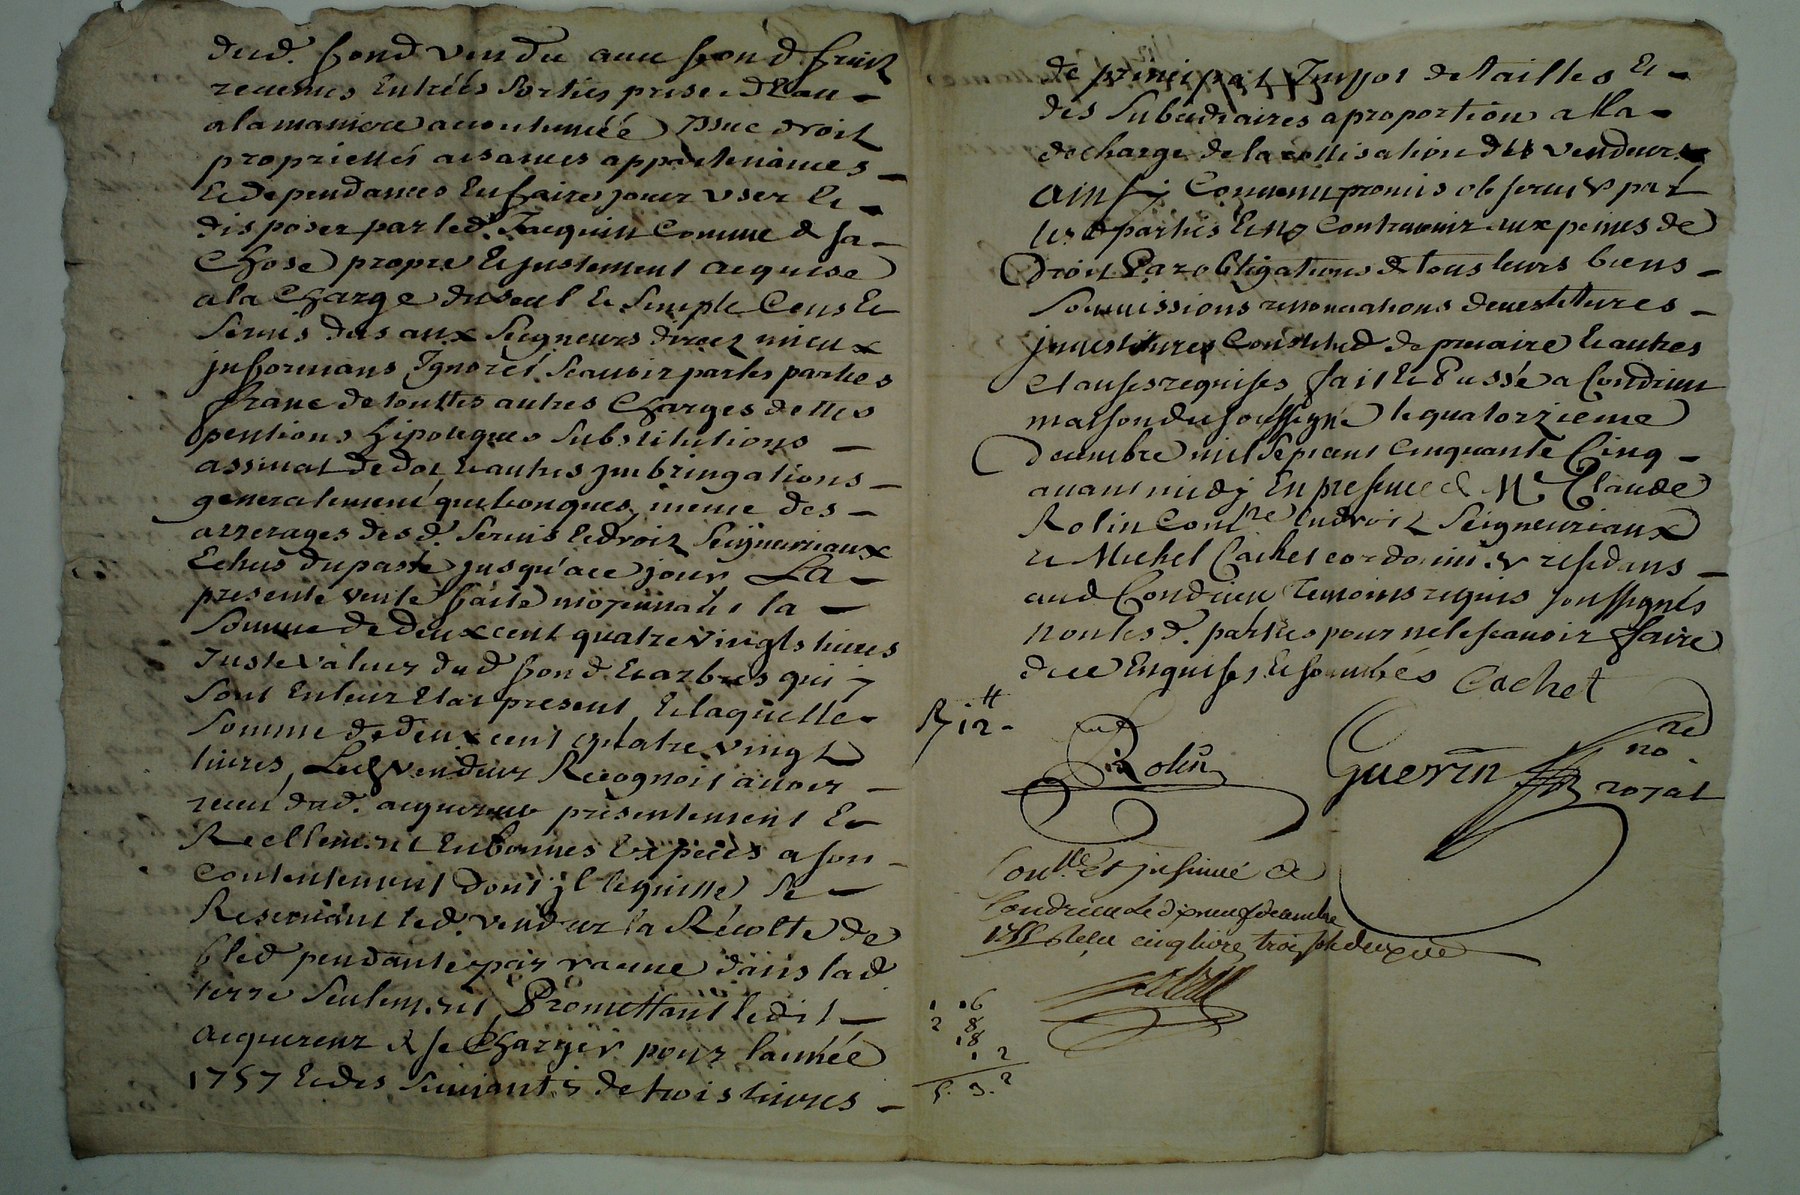 dud. fond vendu avec fond fruits
revenus Entrées Sorties prise d'Eau
a la maniere accoutumée Issue droit
propriettés aisances appartenances
Et dependances En faire jouir User Et
disposer par led. Jacquin Comme de sa
Chose propre Et justement acquise
a la Charge du seul Et Simple Cens Et
Servis dus aux Seigneurs directz mieux
jnformans Ignorés Scauoir par les parties
franc de touttes autres Charges dettes
pentions hipoteques Substitutions
assinat de dot Et autres jmbringations
generalement quelconques, meme des
arrerages des d. Servis Et droitz Seigneuriaux
Echus du passé jusqu'a ce jour La
presente vente faite moyennant la
Somme de deux cent quatre vingts livres
Juste valeur dud. fond Et arbres qui
Sont En leur Etat present, Et laquelle
Somme de deux cent quatre vingt
livres, Led Vendeur Recognoit avoir
receu dud. acquereur presentement Et
Reellement En bonnes Expeces a son
Contentement dont jl le quitte, Se
Reservant led. vendeur la Récolte de
bled pendante par racine dans lad
terre Seulement, Promettant ledit
acquereur de se Charger pour l'année
1757 Et des Suivantes de trois livres
de principal Impot de tailles Et
des Subcidiaires a proportion a la
decharge de la cottisation des vendeurs
ainsy Convenu promis observer par
les parties Et ny Contrevenir aux peines de
Droit Par obligations de tous leurs biens
Soumissions renonciations devestitures
jnvestitures Constitud de precaire Et autres
Clauses requises fait Et Passé a Condrieu
maison du soussigné le quatorzieme
Decembre mil Sept cent Cinquante Cinq
avant midy En presence de Mr Claude
Rolin En droitz Seigneuriaux
et Michel Cachet cordonnier residans
aud Condrieu Temoins requis soussignés
non les d. parties pour ne le scavoir faire
de ce Enquises Et sommées Cachet
12
Rolin
Guerin no.re royal
Con.lle Et jnsinué a
Condrieu Le dixneuf decembre
1755 Reçu cinq livre trois sols deux
1 . 16
2 8
18
. 2
5. 3. 2